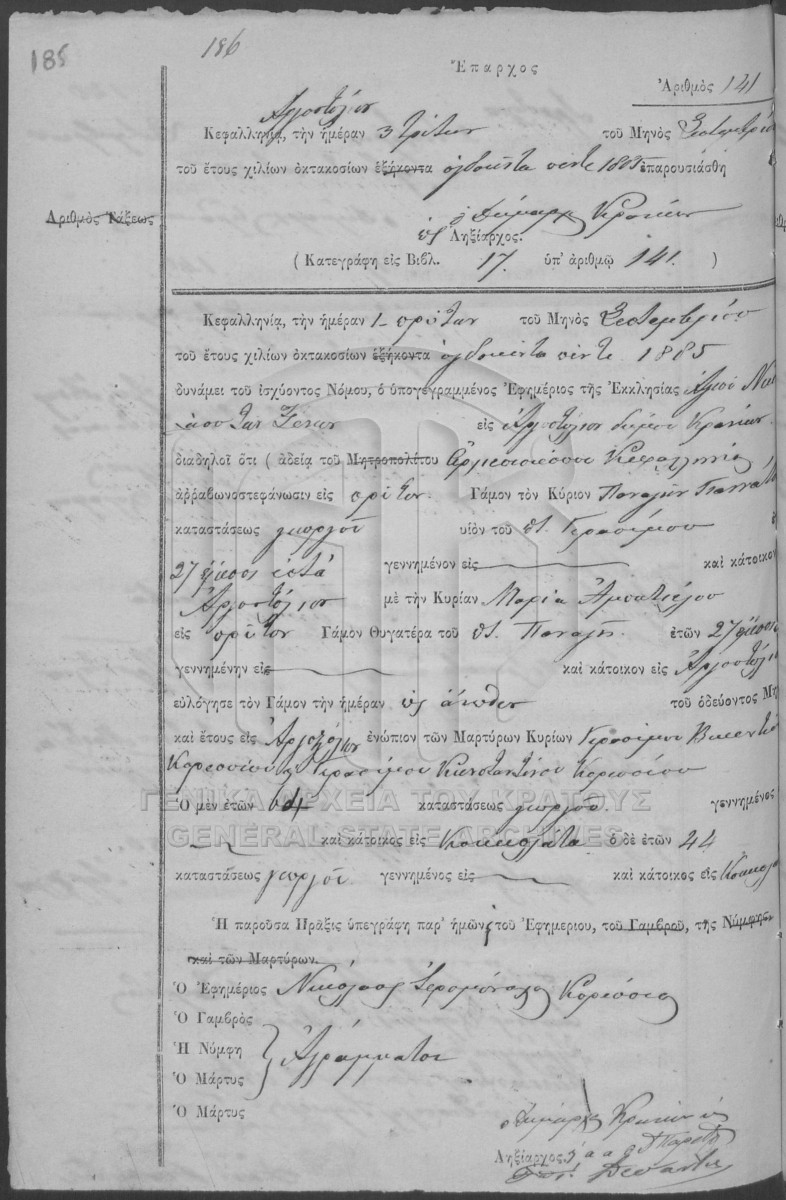 185
186
Ἔπαρχος
Ἀριθμὸς 141
Ἀργοστόλιον
Κεφαλληνίᾳ, τὴν ἡμέραν 3 τρίτην τοῦ Μηνὸς Σεπτεμβρίου
τοῦ ἔτους χιλίων ὀκτακοσίων ἑξήκοντα ὀγδοήντα πέντε 1885 ἐπαρουσιάσθη
Ἀριθμὸς Τάξεως
ὁ Δήμαρχ Κρανίων
ὡς Ληξίαρχος.
( Κατεγράφη εἰς Βιβλ. 17. ὑπ' ἀριθμῷ 141. )
Κεφαλληνίᾳ, τὴν ἡμέραν 1 πρώτην τοῦ Μηνὸς Σεπτεμβρίου
τοῦ ἔτους χιλίων ὀκτακοσίων ἑξήκοντα ὀγδοήντα πέντε 1885
δυνάμει τοῦ ἰσχύοντος Νόμου, ὁ ὑπογεγραμμένος Ἐφημέριος τῆς Ἐκκλησίας Ἁγίου Νικ
λάου των Ξένων εἰς Ἀργοστόλιον δήμου Κρανίων
διαδηλοῖ ὅτι ( ἀδείᾳ τοῦ Μητροπολίτου Ἀρχιεπισκόπου Κεφαλληνίας
ἀῤῥαβωνοστεφάνωσιν εἰς πρῶτον Γάμον τὸν Κύριον Παναγῆν Γιαννάτο
καταστάσεως γεωργοῦ υἱὸν τοῦ Γερασίμου
27 εἴκοσι ἑπτά γεννημένον εἰς καὶ κάτοικον
Ἀργοστόλιον μὲ τὴν Κυρίαν Μαρία Ἀμπατιέλου
εἰς πρῶτον Γάμον Θυγατέρα τοῦ Παναγῆ. ἐτῶν 27 εἴκοσι
γεννημένην εἰς καὶ κάτοικον εἰς Ἀργοστόλιο
εὐλόγησε τὸν Γάμον τὴν ἡμέραν ὡς ἄνωθεν τοῦ ὁδεύοντος Μη
καὶ ἔτους εἰς Ἀργοστόλιον ἐνώπιον τῶν Μαρτύρων Κυρίων Γερασίμου
Γερασίμου Κωνσταντίνου
Ὁ μὲν ἐτῶν 64 καταστάσεως γεωργοῦ. γεννημένος
καὶ κάτοικος εἰς Κοκκολάτα ὁ δὲ ἐτῶν 44
καταστάσεως γεωργοῦ γεννημένος εἰς καὶ κάτοικος εἰς Κοκκολα
Ἡ παροῦσα Πρᾶξις ὑπεγράφη παρ' ἡμῶν τοῦ Ἐφημερίου, τοῦ Γαμβροῦ, τῆς Νύμφης
καὶ τῶν Μαρτύρων.
Ὁ Ἐφημέριος Νικόλαος Ἱερομόναχος
Ὁ Γαμβρὸς
Ἡ Νύμφη
Ἀγράμματοι
Ὁ Μάρτυς
Ὁ Μάρτυς
ὁ Δήμαρχ Κρανίων ὡς
Ληξίαρχος
ΓΕΝΙΚΑ ΑΡΧΕΙΑ ΤΟΥ ΚΡΑΤΟΥΣ
GENERAL STATE ARCHIVES